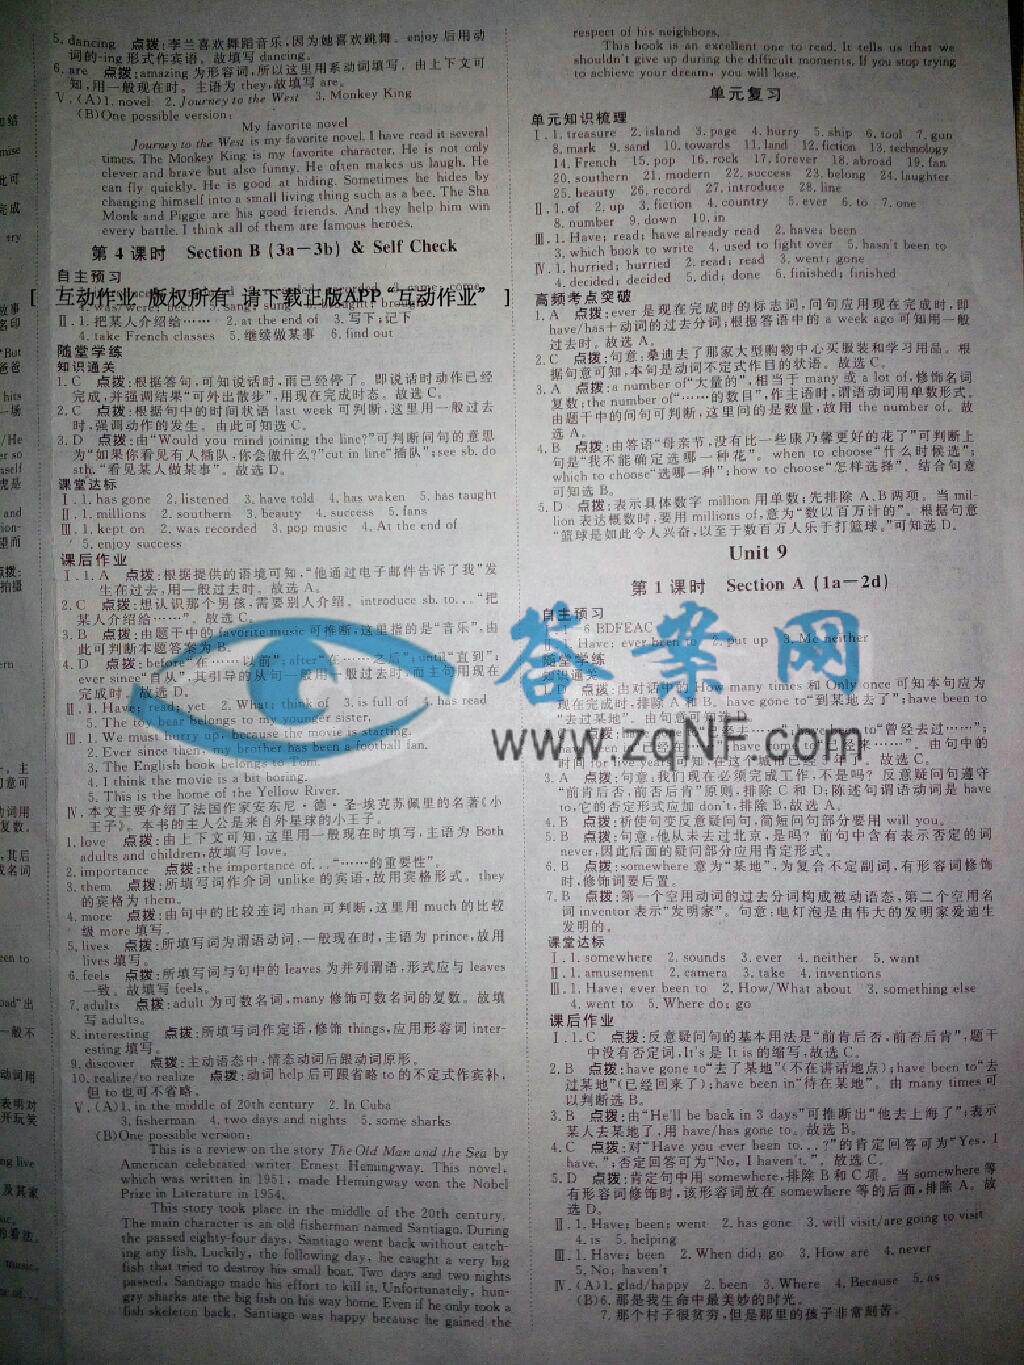 5. dancing 点拨:李兰喜欢舞蹈音乐,因为她喜欢跳舞。enjoy后用动
词的-ing形式作宾语。故填写dancing。
6. are 点拨:amazing为形容词,所以这里用系动词填写。由上下文可
知,用一般现在时。主语为they,故填写are。
Ⅴ. (A)1. novel 2. Journey to the West 3. Monkey King
(B)One possible version:
My favorite novel
Journey to the West is my favorite novel. I have read it several
times. The Monkey King is my favorite character. He is not only
clever and brave but also funny. He often makes us laugh. He
can fly quickly. He is good at hiding. Sometimes he hides by
changing himself into a small living thing such as a bee. The Sha
Monk and Piggie are his good friends. And they help him win
every battle. I think all of them are famous heroes.
第 4 课时 Section B (3a—3b) & Self Check
自主预习
[ 互动作业 版权所有 请下载正版APP“互动作业” ]
Ⅱ. 1. 把某人介绍给…… 2. at the end of 3. 写下;记下
4. take French classes 5. 继续做某事 6. find out
随堂学练
知识通关
1. C 点拨:根据答句,可知说话时,雨已经停了。即说话时动作已经
完成,并强调结果“可外出散步”,用现在完成时态。故选C。
2. C 点拨:根据句中的时间状语last week可判断,这里用一般过去
时,强调动作的发生。由此可知选C。
3. D 点拨:由“Would you mind joining the line?”可判断问句的意思
为“如果你看见有人插队,你会做什么?”cut in line“插队”;see sb. do
sth.“看见某人做某事”。故选D。
课堂达标
Ⅰ. 1. has gone 2. listened 3. have told 4. has waken 5. has taught
Ⅱ. 1. millions 2. southern 3. beauty 4. success 5. fans
Ⅲ. 1. kept on 2. was recorded 3. pop music 4. At the end of
5. enjoy success
课后作业
Ⅰ. 1. A 点拨:根据提供的语境可知,“他通过电子邮件告诉了我”发
生在过去,用一般过去时。故选A。
2. C 点拨:想认识那个男孩,需要别人介绍。introduce sb. to...“把
某人介绍给……”。故选C。
3. B 点拨:由题干中的favorite music可推断,这里指的是“音乐”,由
此可判断本题答案为B。
4. D 点拨:before“在……以前”;after“在……之后”;until“直到”;
ever since“自从”,其引导的从句一般用一般过去时,而主句用现在
完成时。故选D。
Ⅱ. 1. Have; read; yet 2. What; think of 3. is full of 4. has read
5. The toy bear belongs to my younger sister.
Ⅲ. 1. We must hurry up, because the movie is starting.
2. Ever since then, my brother has been a football fan.
3. The English book belongs to Tom.
4. I think the movie is a bit boring.
5. This is the home of the Yellow River.
Ⅳ. 本文主要介绍了法国作家安东尼·德·圣-埃克苏佩里的名著《小
王子》。本书的主人公是来自外星球的小王子。
1. love 点拨:由上下文可知,这里用一般现在时填写,主语为Both
adults and children,故填写love。
2. importance 点拨:the importance of...“……的重要性”。
3. them 点拨:所填写词作介词unlike的宾语,故用宾格形式。they
的宾格为them。
4. more 点拨:由句中的比较连词than可判断,这里用much的比较
级more填写。
5. lives 点拨:所填写词为谓语动词,一般现在时,主语为prince,故用
lives填写。
6. feels 点拨:所填写词与句中的leaves为并列谓语,形式应与leaves
一致。故填写feels。
7. adults 点拨:adult为可数名词,many修饰可数名词的复数。故填
写adults。
8. interesting 点拨:所填写词作定语,修饰things,应用形容词inter-
esting填写。
9. discover 点拨:主动语态中,情态动词后跟动词原形。
10. realize/to realize 点拨:动词help后可跟省略to的不定式作宾补,
但to也可不省略。
Ⅴ. (A)1. in the middle of 20th century 2. In Cuba
3. fisherman 4. two days and nights 5. some sharks
(B)One possible version:
This is a review on the story The Old Man and the Sea by
American celebrated writer Ernest Hemingway. This novel,
which was written in 1951, made Hemingway won the Nobel
Prize in Literature in 1954.
This story took place in the middle of the 20th century.
The main character is an old fisherman named Santiago. During
the passed eighty-four days, Santiago went back without catch-
ing any fish. Luckily, the following day, he caught a very big
fish that tried to destroy his small boat. Two days and two nights
passed. Santiago made his effort to kill it. Unfortunately, hun-
gry sharks ate the big fish on his way home. Even if he only took a
fish skeleton back, Santiago was happy because he gained the
respect of his neighbors.
This book is an excellent one to read. It tells us that we
shouldn't give up during the difficult moments. If you stop trying
to achieve your dream, you will lose.
单元复习
单元知识梳理
Ⅰ. 1. treasure 2. island 3. page 4. hurry 5. ship 6. tool 7. gun
8. mark 9. sand 10. towards 11. land 12. fiction 13. technology
14. French 15. pop 16. rock 17. forever 18. abroad 19. fan
20. southern 21. modern 22. success 23. belong 24. laughter
25. beauty 26. record 27. introduce 28. line
Ⅱ. 1. of 2. up 3. fiction 4. country 5. ever 6. to 7. one
8. number 9. down 10. in
Ⅲ. 1. Have; read; have already read 2. have; been
3. which book to write 4. used to fight over 5. hasn't been to
Ⅳ. 1. hurried; hurried 2. read; read 3. went; gone
4. decided; decided 5. did; done 6. finished; finished
高频考点突破
1. A 点拨:ever是现在完成时的标志词,问句应用现在完成时,即
have/has+动词的过去分词;根据答语中的a week ago可知用一般
过去时。故选A。
2. C 点拨:句意:桑迪去了那家大型购物中心买服装和学习用品。根
据句意可知,本句是动词不定式作目的状语。故选C。
3. A 点拨:a number of“大量的”,相当于many或a lot of,修饰名词
复数;the number of“……的数目”,作主语时,谓语动词用单数形式。
由题干中的问句可判断,这里问的是数量,故用the number of。故
选A。
4. B 点拨:由答语“母亲节,没有比一些康乃馨更好的花了”可判断上
句是“我不能确定选哪一种花”。when to choose“什么时候选”;
which to choose“选哪一种”;how to choose“怎样选择”。结合句意
可知选B。
5. D 点拨:表示具体数字million用单数;先排除A、B两项。当mil-
lion表达概数时,要用millions of,意为“数以百万计的”。根据句意
“篮球是如此令人兴奋,以至于数百万人乐于打篮球。”可知选D。
Unit 9
第 1 课时 Section A (1a—2d)
自主预习
6 BDFEAC
Have; ever been to 2. put up 3. Me neither
随堂学练
知识通关
D 点拨:由对话中的How many times和Only once可知本句应为
现在完成时,排除A和B。have gone to“到某地去了”;have been to
“去过某地”。由句意可知选
www.zqNF.com
答案网
3. A 点拨:句意:我们现在必须完成工作,不是吗?反意疑问句遵守
“前肯后否,前否后肯”原则,排除C和D;陈述句谓语动词是have
to,它的否定形式应加don't,排除B,故选A。
4. B 点拨:祈使句变反意疑问句,简短问句部分要用will you。
5. B 点拨:句意:他从未去过北京,是吗?前句中含有表示否定的词
never,因此后面的疑问部分应用肯定形式。
6. B 点拨:somewhere意为“某地”,为复合不定副词,有形容词修饰
时,修饰词要后置。
7. B 点拨:第一个空用动词的过去分词构成被动语态,第二个空用名
词inventor表示“发明家”。句意:电灯泡是由伟大的发明家爱迪生
发明的。
课堂达标
Ⅰ. 1. somewhere 2. sounds 3. ever 4. neither 5. want
Ⅱ. 1. amusement 2. camera 3. take 4. inventions
Ⅲ. 1. Have; ever been to 2. How/What about 3. something else
4. went to 5. Where do; go
课后作业
Ⅰ. 1. C 点拨:反意疑问句的基本用法是“前肯后否,前否后肯”,题干
中没有否定词,It's是It is的缩写,故选C。
2. B 点拨:have gone to“去了某地”(不在讲话地点);have been to“去
过某地”(已经回来了);have been in“待在某地”。由many times可
以判断选B。
3. B 点拨:由“He'll be back in 3 days”可推断出“他去上海了”;表示
某人去某地了,用have/has gone to。故选B。
4. C 点拨:对“Have you ever been to...?”的肯定回答可为“Yes, I
have.”;否定回答可为“No, I haven't.”。故选C。
5. D 点拨:肯定句中用somewhere,排除B和C项。当somewhere等
有形容词修饰时,该形容词放在somewhere等的后面,排除A。故
选D。
Ⅱ. 1. Have; been; went 2. has gone 3. will visit/are going to visit
4. is 5. helping
Ⅲ. 1. Have; been 2. When did; go 3. How are 4. never
5. No; haven't
Ⅳ. (A)1. glad/happy 2. been 3. Where 4. Because 5. as
(B)6. 那是我生命中最美妙的时光。
7. 那个村子很贫穷,但是那里的孩子非常刻苦。